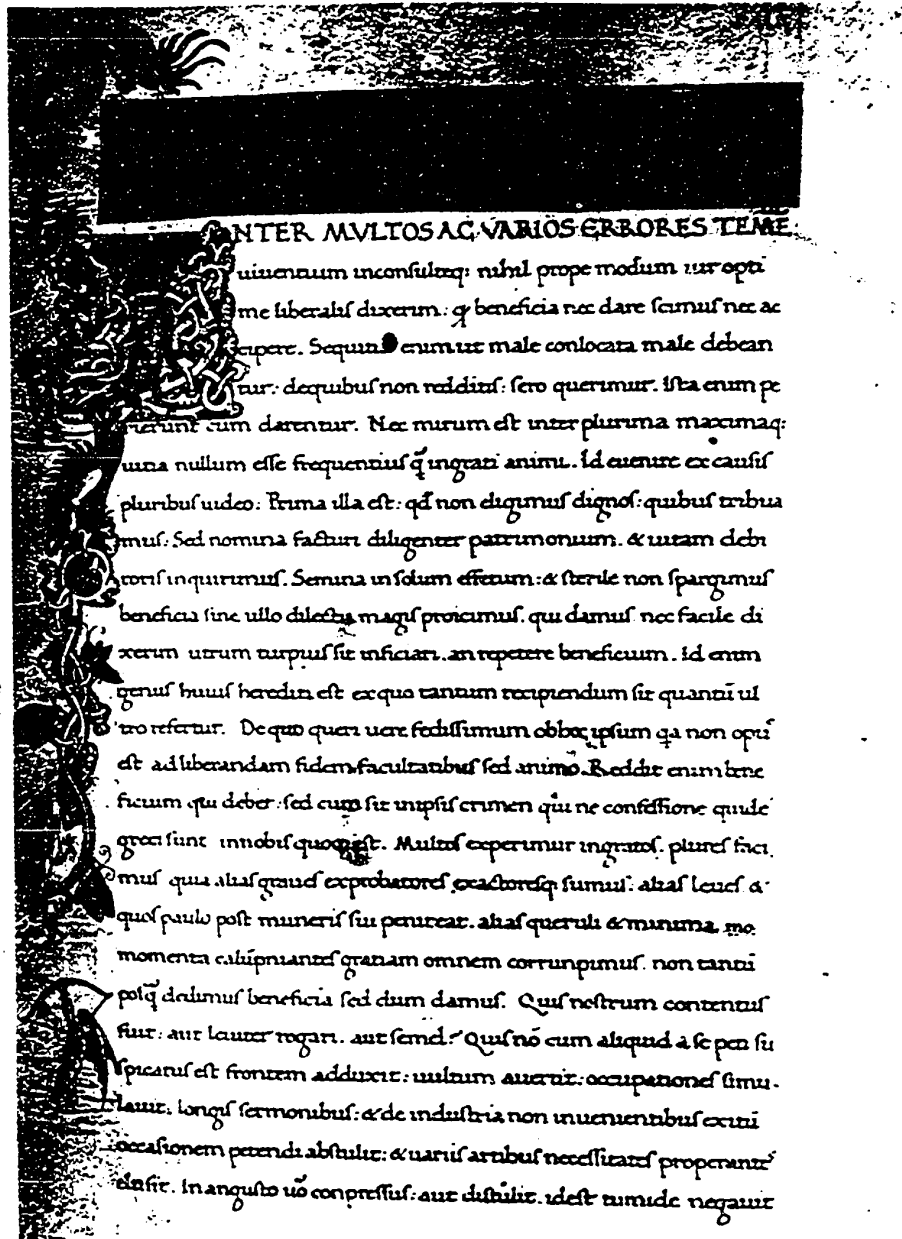 INTER MVLTOS AC VARIOS ERRORES TEME
uiuentium inconsulteq: nihil prope modum uir opti
me liberalis dixerim: q̃ beneficia nec dare scimus nec ac
cipere. Sequitur enim ut male conlocata male debean
tur: dequibus non redditis: sero querimur. Ista enim pe
rierunt cum darentur. Nec mirum est inter plurima maximaq:
uitia nullum esse frequentius q̃ ingrati animi. Id euenire ex causis
pluribus uideo: Prima illa est: qđ non eligimus dignos: quibus tribua
mus: Sed nomina facturi diligenter patrimonium. & uitam debi
toris inquirimus. Semina in solum effetum: & sterile non spargimus
beneficia sine ullo dilectu magis proicimus. qui damus nec facile di
xerim utrum turpius sit inficiari. an repetere beneficium. Id enim
genus huius crediti est ex quo tantum recipiendum sit quantũ ul
tro refertur. De quo queri uere fedissimum ob hoc ipsum q̃a non opũ
est ad liberandam fidem facultatibus sed animo. Reddit enim bene
ficium qui debet: sed cum sit in ipsis crimen qui ne confessione quidẽ
greci sunt in nobis quoque est. Multos experimur ingratos. plures faci
mus quia alias graues exprobatores exactoresq; sumus: alias leues &
quos paulo post muneris sui peniteat. alias queruli & minima mo
momenta calũpniantes gratiam omnem corrunpimus. non tantũ
posq̃ dedimus beneficia sed dum damus. Quis nostrum contentus
fuit: aut leuiter rogari. aut semel? Quis nõ cum aliquid a se peti su
spicatus est frontem adduxit: uultum auertit: occupationes simu
lauit: longis sermonibus: & de industria non inuenientibus exitũ
occasionem petendi abstulit: & uariis artibus necessitates properante
elusit. In angusto uõ conpressus: aut distulit. idest timide negauit